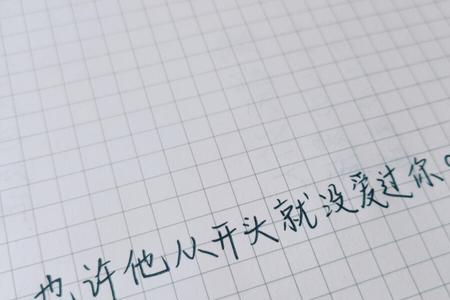 也许他从开头就没爱过你。